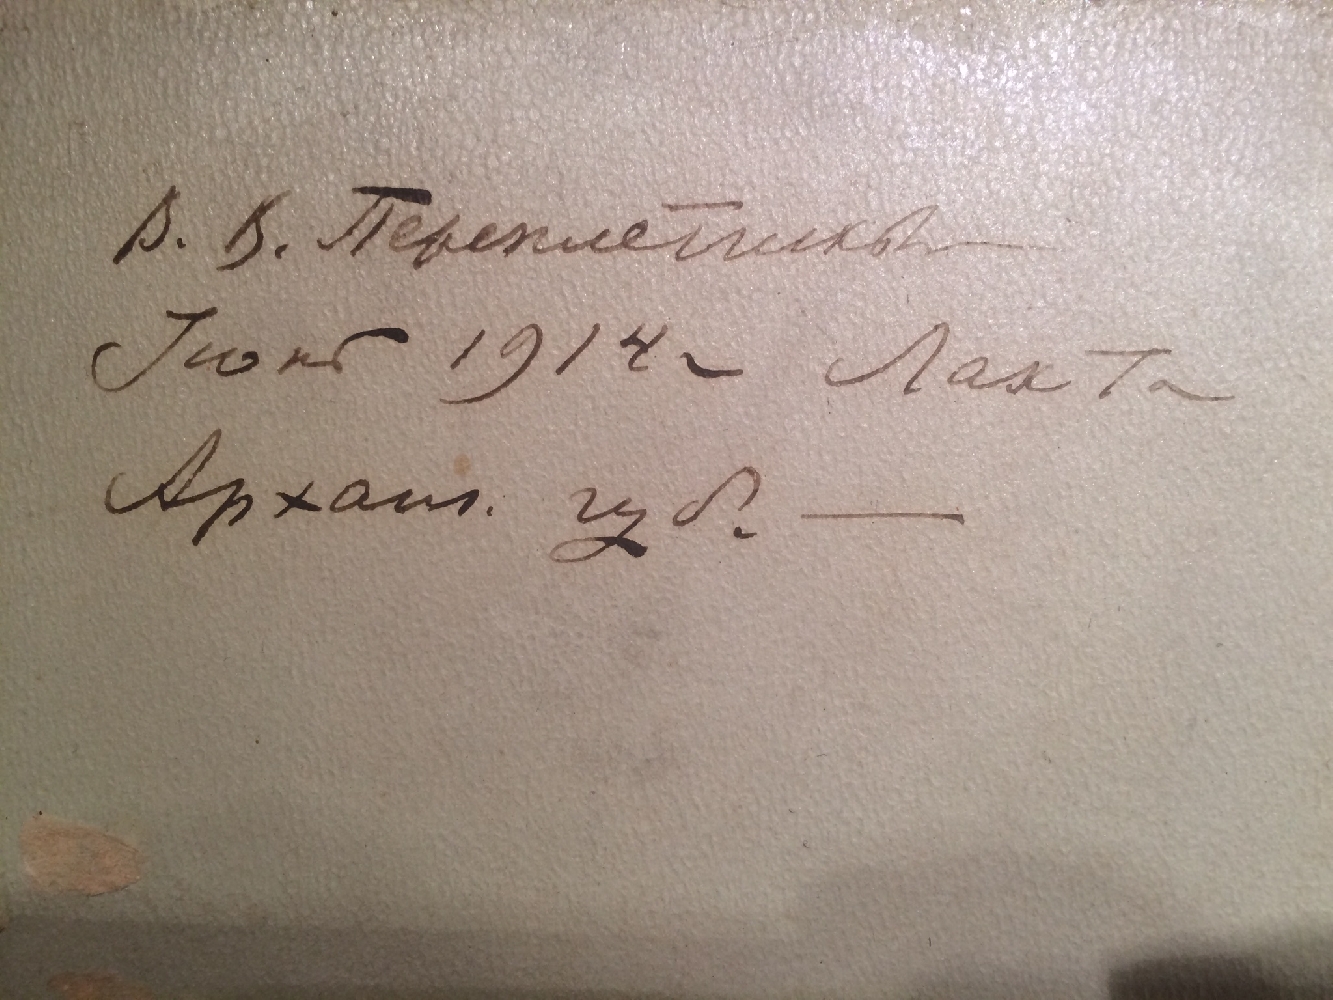 В. В. Переплетчиковъ
Іюнь 1914 г Лахта
Арханг. губ. —